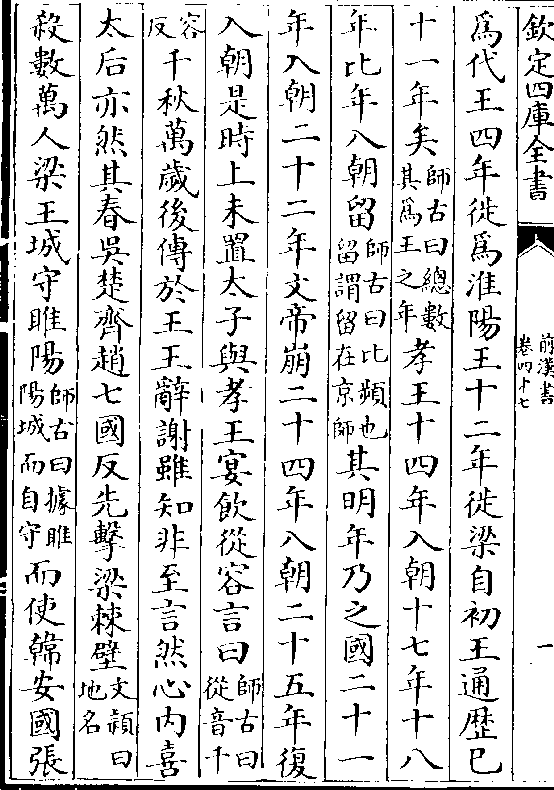 欽定四庫全書
前漢書
卷四十七
一
為代王四年徙為淮陽王十二年徙梁自初王通歴已
十一年矣師古曰總數其為王之年孝王十四年入朝十七年十八
年比年入朝留師古曰比頻也留謂留在京師其明年乃之國二十一
年入朝二十二年文帝崩二十四年入朝二十五年復
入朝是時上未置太子與孝王宴飲從容言曰師古曰從音千
容反千秋萬歲後傳於王王辭謝雖知非至言然心内喜
太后亦然其春吳楚齊趙七國反先擊梁棘壁文頴曰地名
殺數萬人梁王城守睢陽師古曰據睢陽城而自守而使韓安國張